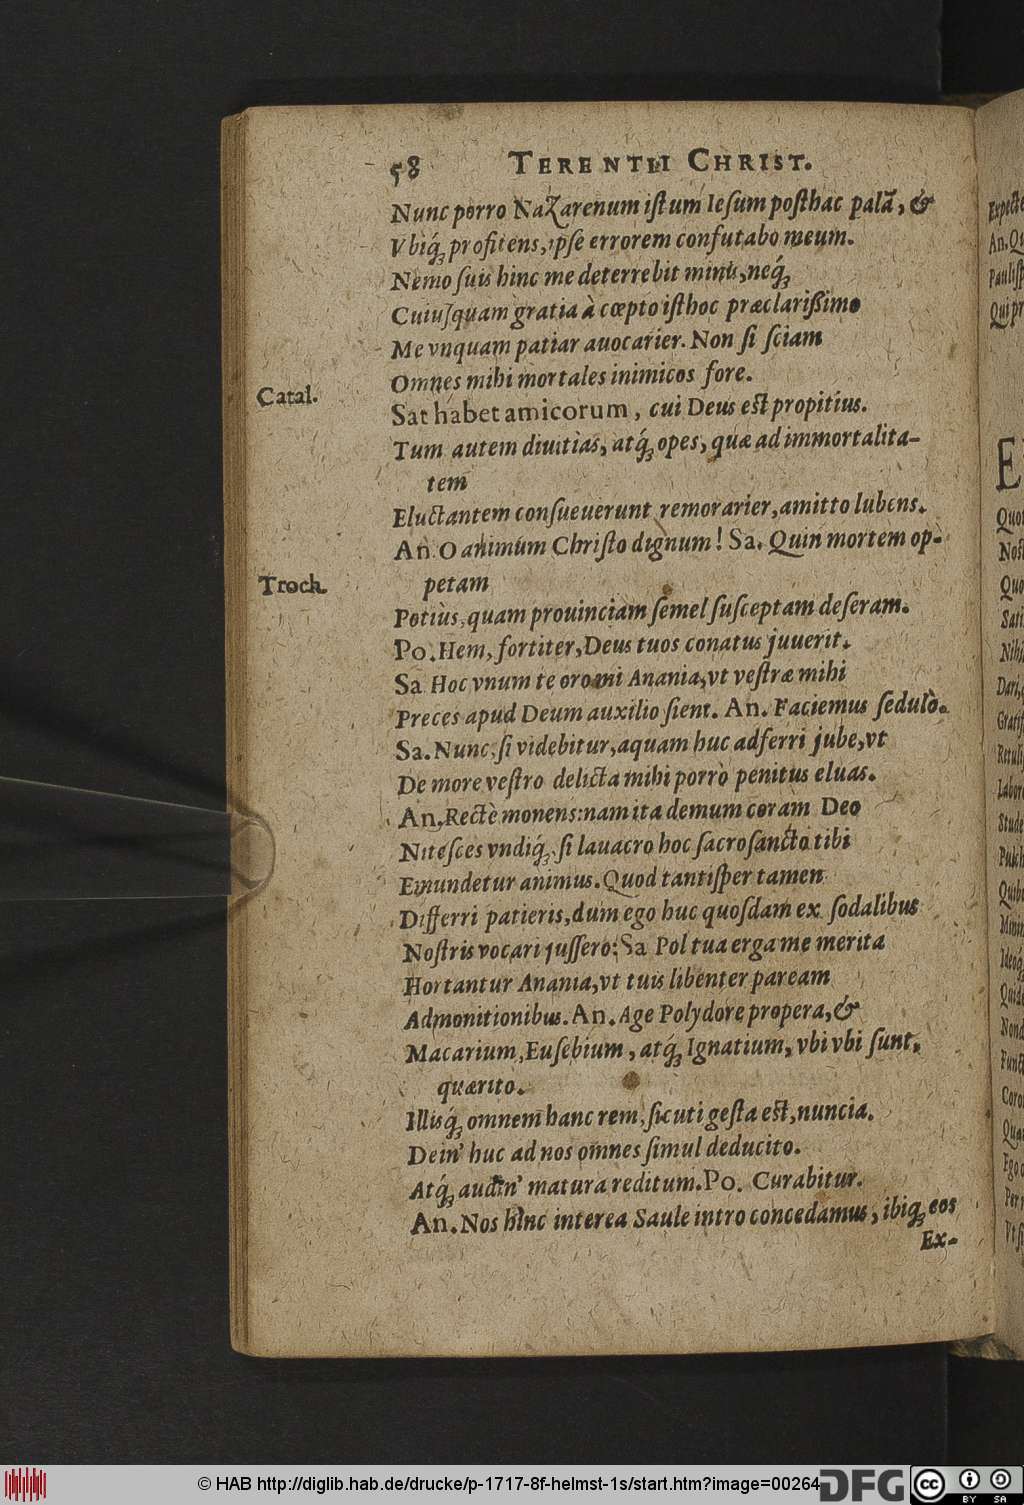 58 TERENTII CHRIST.
Nunc porro Nazarenum iſtum Ieſum poſthac palā, &
Vbiq́; profitens, ipſe errorem confutabo meum.
Nemo ſuis hinc me deterrebit minis, neq́;
Cuiuſquam gratia à cœpto iſthoc præclarißimo
Me vnquam patiar auocarier. Non ſi ſciam
Omnes mihi mortales inimicos fore.
Catal.
Sat habet amicorum, cui Deus est propitius.
Tum autem diuitias, atq́; opes, quæ ad immortalita-
tem
Eluctantem conſueuerunt remorarier, amitto lubens.
An. O animum Chriſto dignum! Sa. Quin mortem op-
Troch.
petam
Potiùs, quam prouinciam ſemel ſuſceptam deſeram.
Po. Hem, fortiter, Deus tuos conatus juuerit.
Sa Hoc vnum te oro mi Anania, vt veſtræ mihi
Preces apud Deum auxilio ſient. An. Faciemus ſedulò.
Sa. Nunc, ſi videbitur, aquam huc adferri jube, vt
De more veſtro delicta mihi porrò penitus eluas.
An. Rectè monens: nam ita demum coram Deo
Niteſces vndiq́;, ſi lauacro hoc ſacroſancto tibi
Emundetur animus. Quod tantiſper tamen
Differri patieris, dum ego huc quoſdam ex ſodalibus
Noſtris vocari juſſero: Sa Pol tua erga me merita
Hortantur Anania, vt tuis libenter paream
Admonitionibus. An. Age Polydore propera, &
Macarium, Euſebium, atq́; Ignatium, vbi vbi ſunt,
quærito.
Illisq́; omnem hanc rem, ſicuti geſta est, nuncia.
Dein' huc ad nos omnes ſimul deducito.
Atq́; audin' matura reditum. Po. Curabitur.
An. Nos hinc interea Saule intro concedamus, ibiq; eos
Ex-
An. Qu
Pauliſp
Qui pr
Quo
Noſt
Quo
Sati
Nihi
Dari,
Gratiſ
Retuli
Labor
Stude
Pulch
Quibu
Ideoq́
Quide
Nond
Funct
Coro
Qua
Ego
Per
Vt ſi
© HAB http://diglib.hab.de/drucke/p-1717-8f-helmst-1s/start.htm?image=00264
DFG
cc
BY SA